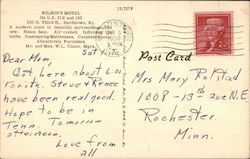 WILSON'S MOTEL
On U.S. 31E and 150
530 N. Third St., Bardstown, Ky.
A modern court in beautiful surroundings.
Steam heat, Air cooled, Individual tiled
baths. Innerspring Mattresses. Carpeted floors.
Attractively Furnished.
Mr. and Mrs. W.L. Mgrs.
Post Card
Sat Nite
Dear Mom,
Got here about 6:00
tonite. Steve & Renee
have been real good.
Hope to be in
Tenn. Tomorrow
afternoon.
Love from
all
Mrs Mary Polstad
1008-13th Ave N.E
Rochester.
Minn.